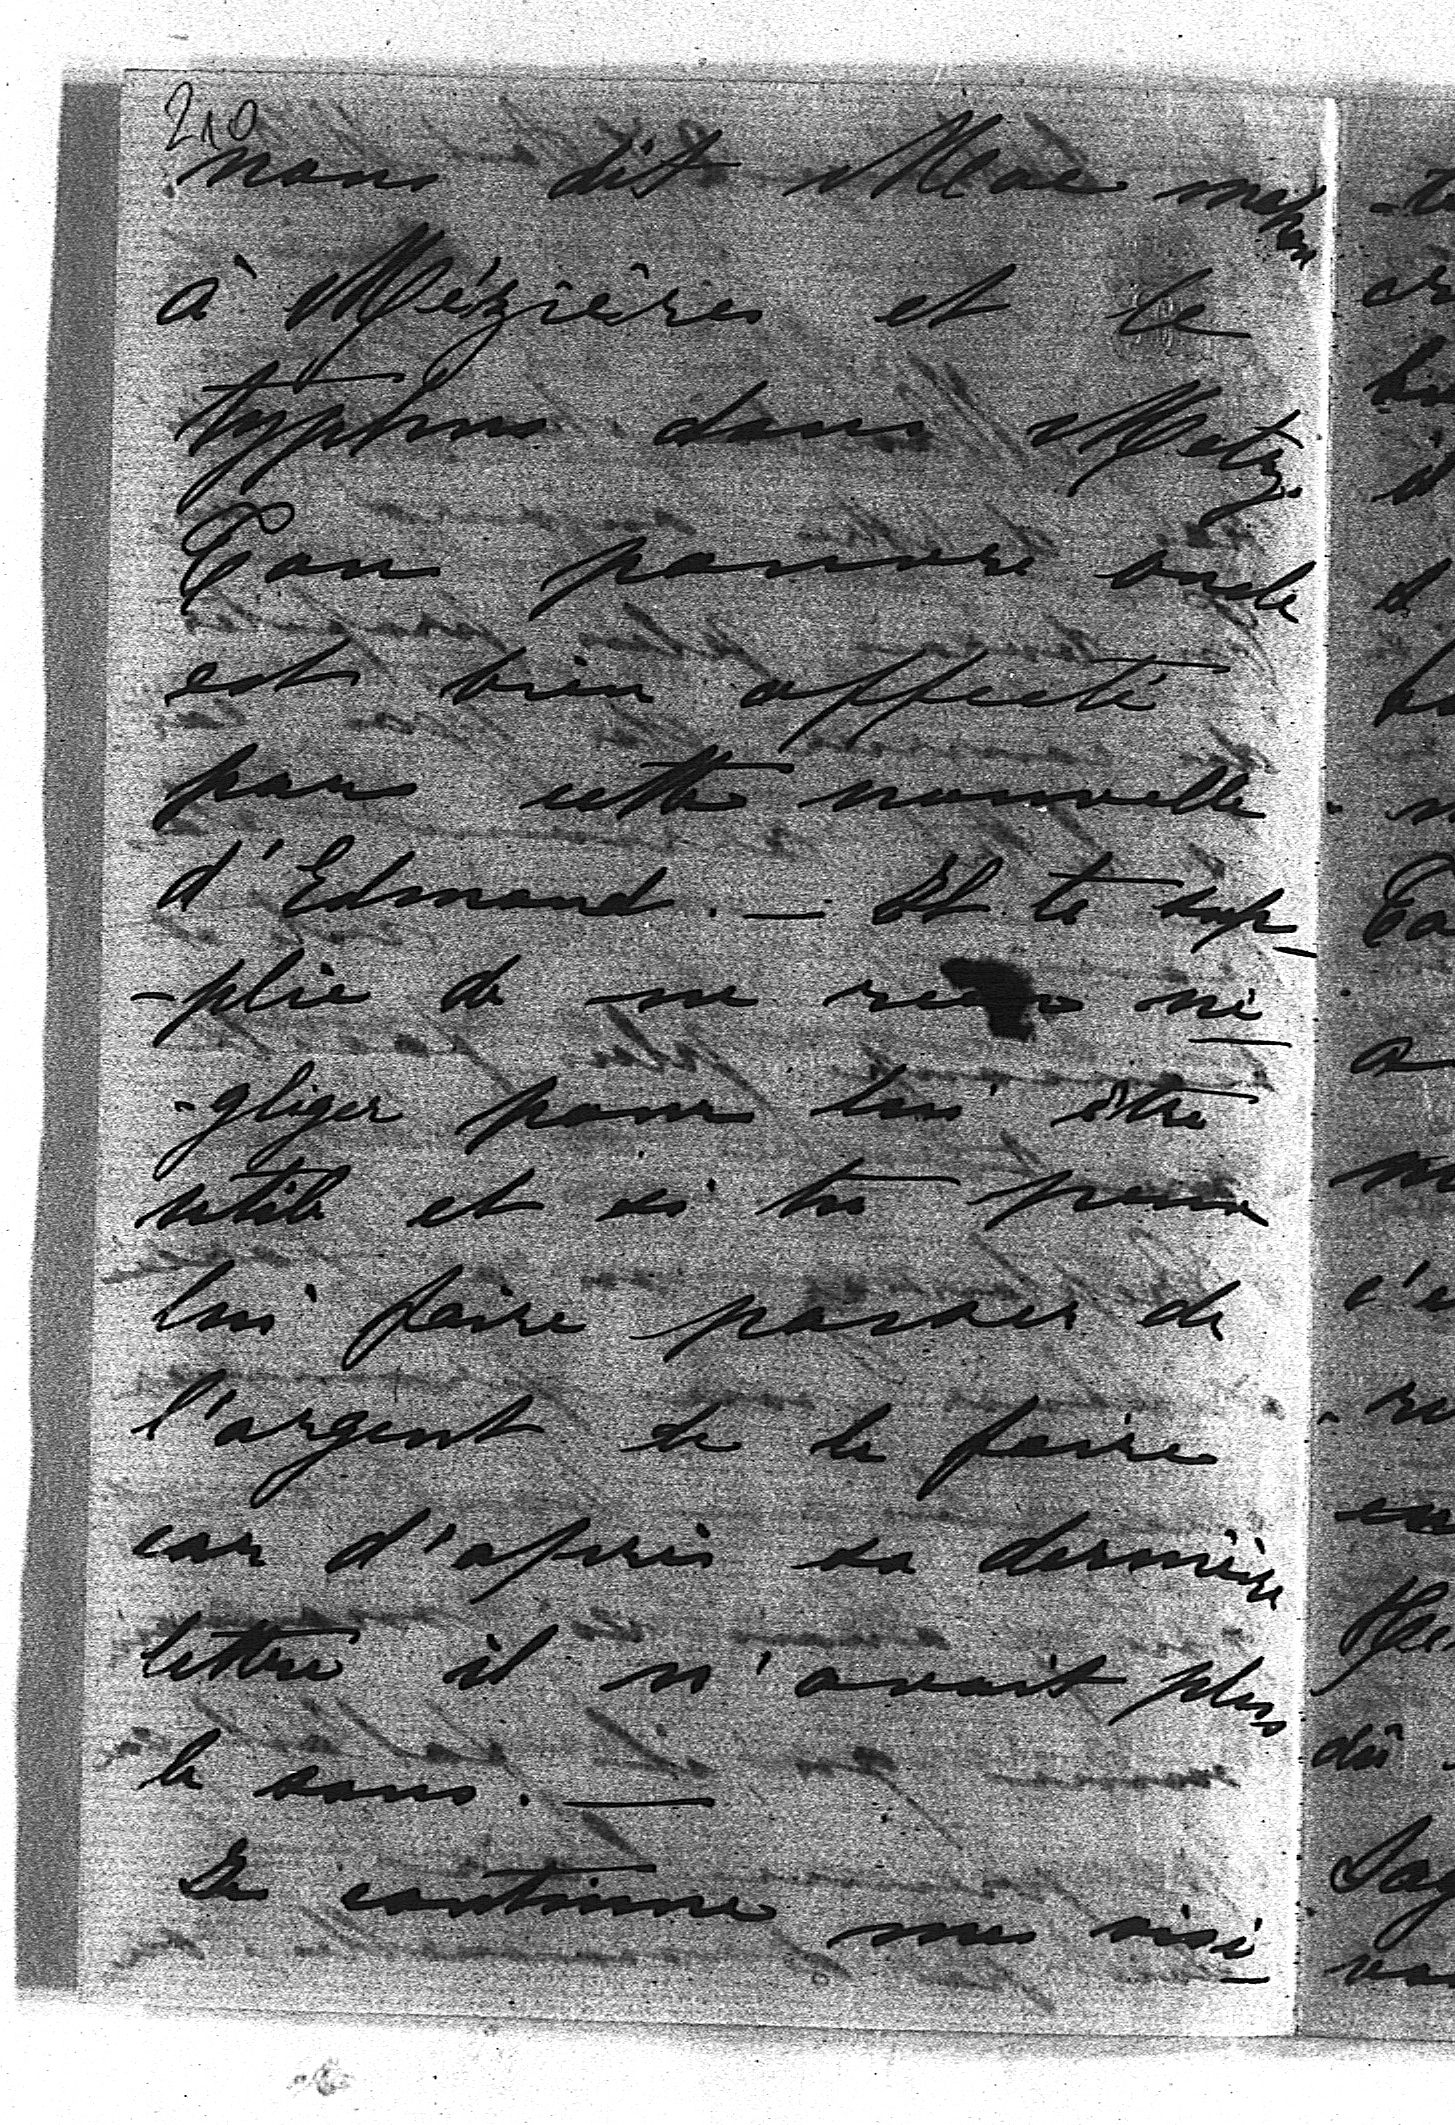 210
nous dit Mac mahon
à Mézières et le
typhus dans Metz.
Ton pauvre oncle
est bien affecté
par cette nouvelle
d'Edmond. — Et te sup-
-plie de ne rien né-
-gliger pour lui être
utile et si tu peux
lui faire passer de
l'argent de le faire
car d'après sa dernière
lettre il n'avait plus
le sous. —
Je continue mes visi-